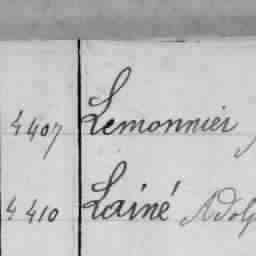 4407 Lemonnier
4410 Lainé Adolp